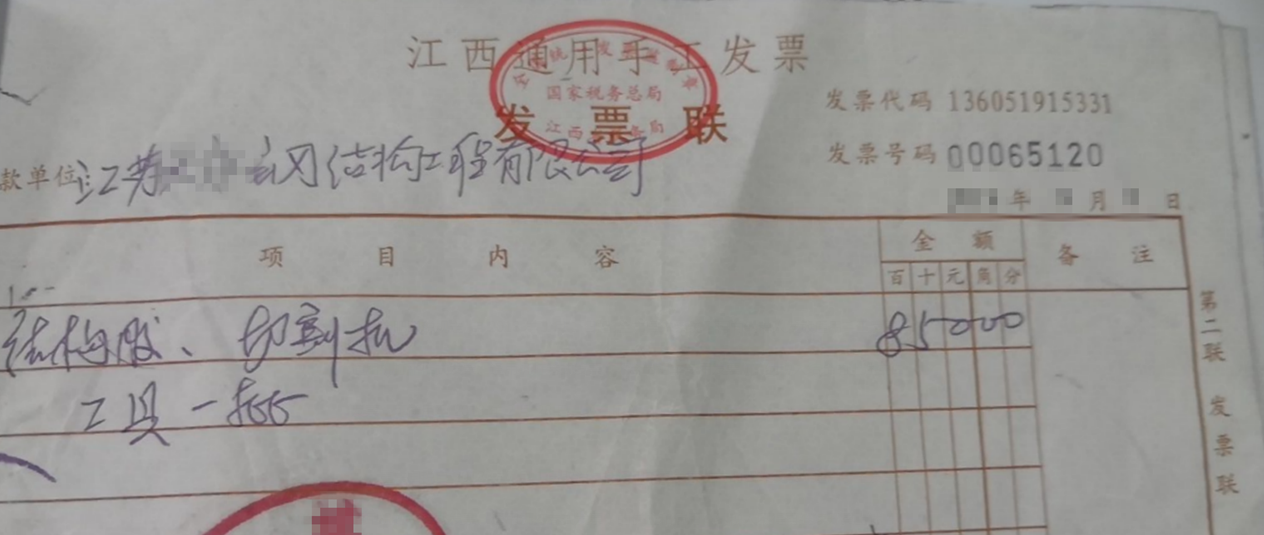 江西通用手工发票
国家税务总局
发票联
江西 务局
发票代码 136051915331
发票号码 00065120
款单位 江苏 钢结构工程有限公司
年 月 日
项目内容 金额 备注
百 十 元 角 分
结构胶、切割机 85000
工具一批
第二联 发票联